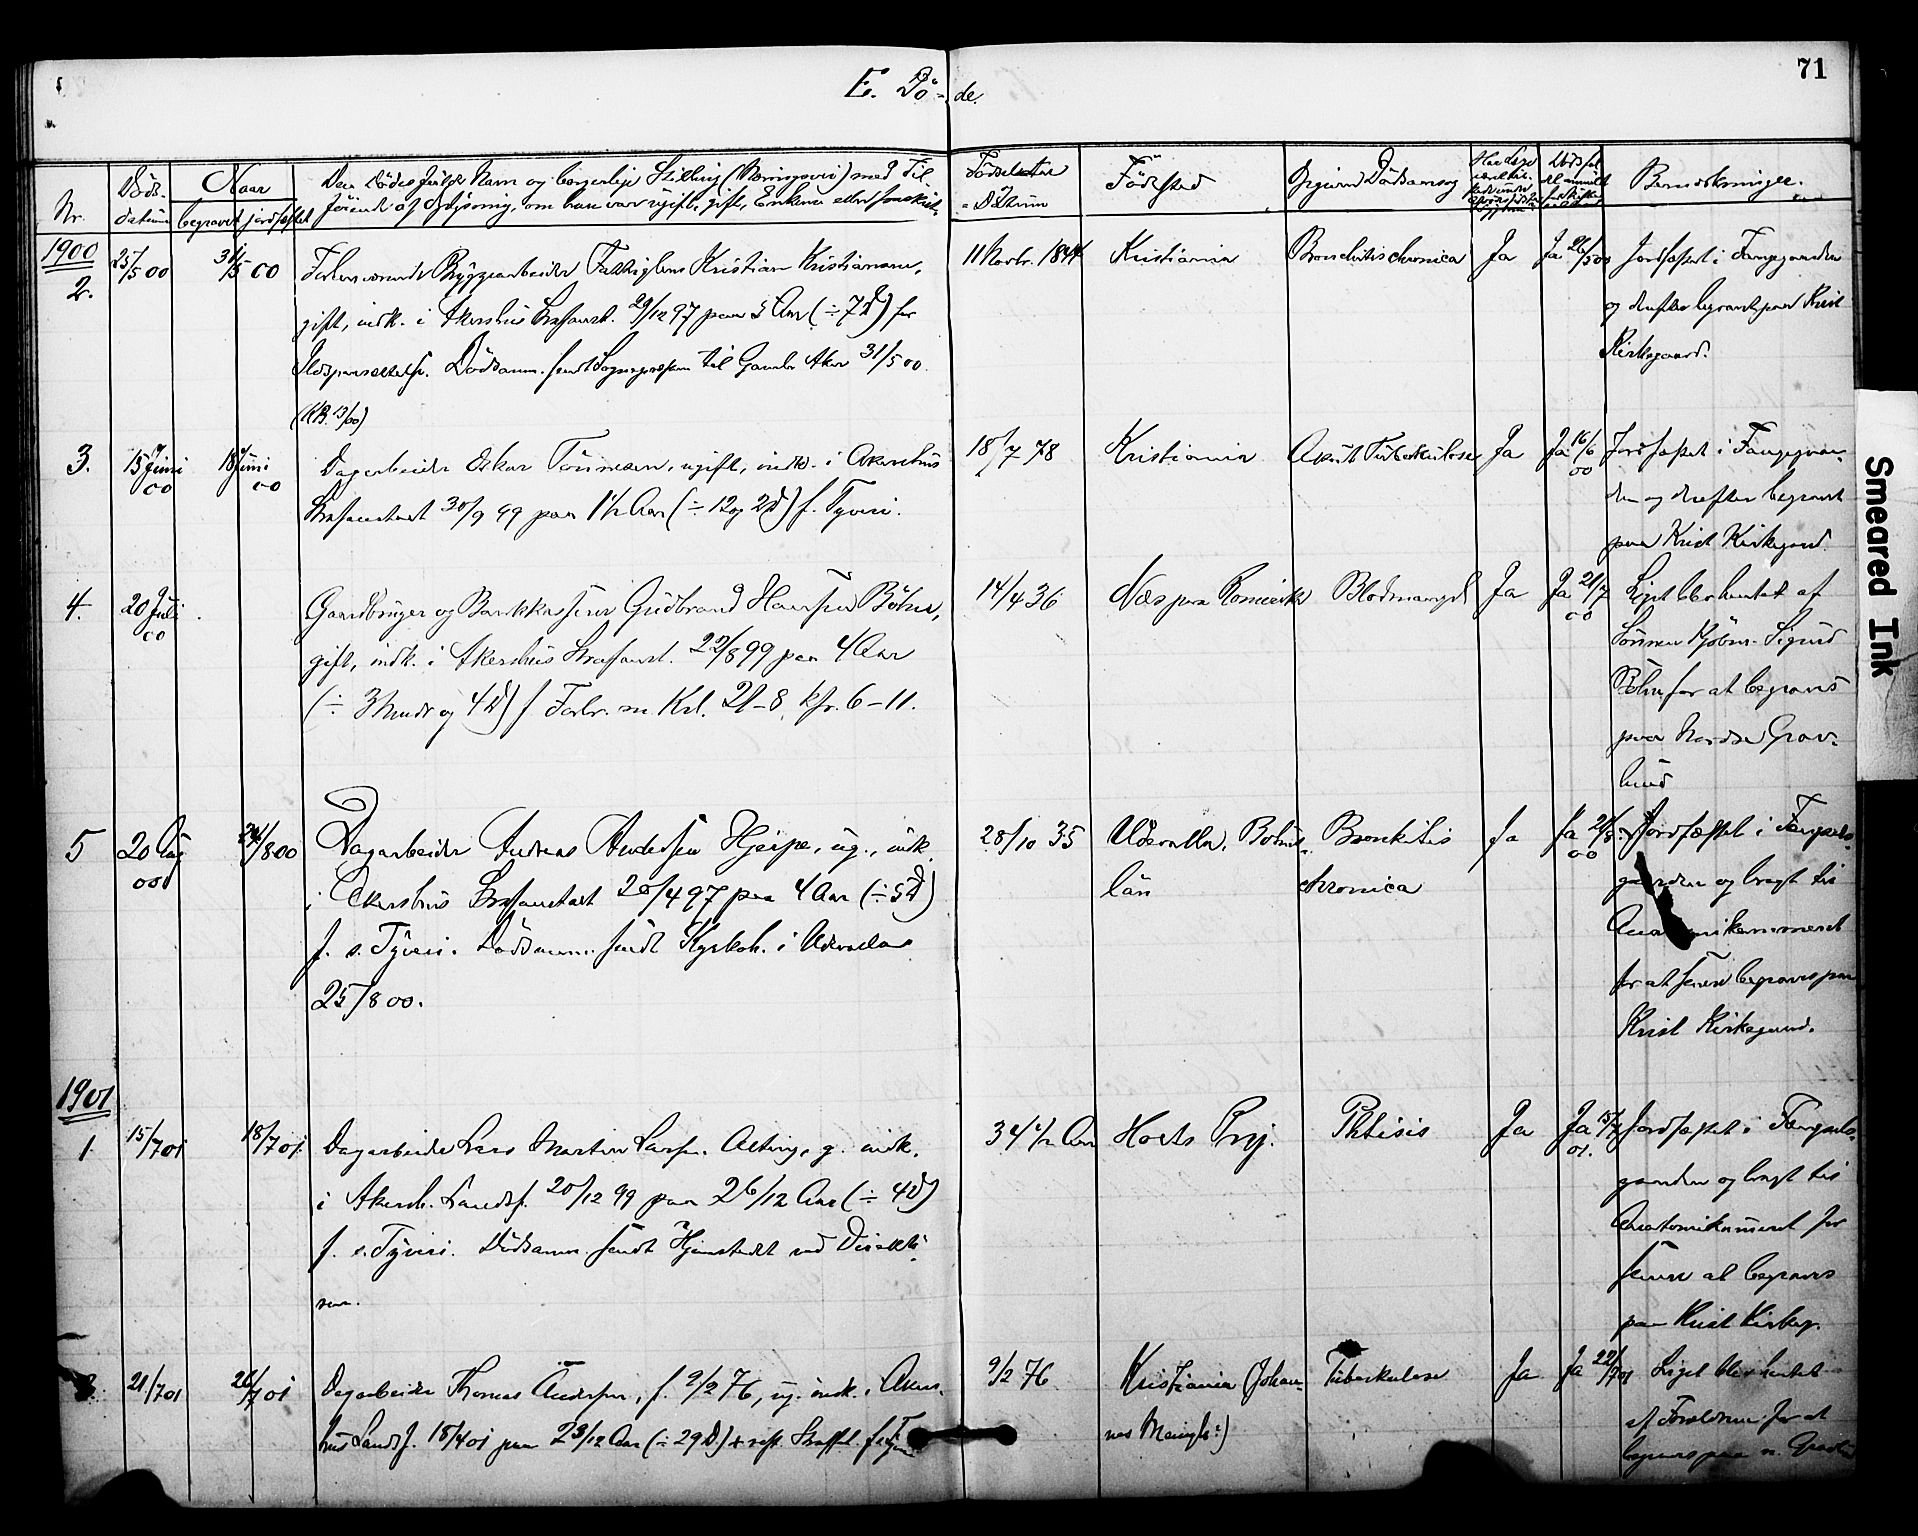 71
E. Dö-de.
Nr.
Døds-
datum
Naar
begravet
jordfæstet
Den Dødes fulde Navn og borgerlige Stilling (Næringsvei) med Til-
føiende af Oplysning, om han var ugift, gift, Enkem. eller fraskilt.
Datum
Födested
Opgiven Dödsaarsag
Bemærkninger.
1900
2.
25/5 00
31/5 00
Kristian Kristiansen,
gift, indk. i Akershus Strafanst. 29/12 97 paa 5 Aar (÷ 7 D) for
Dödsanm. sendt Sognepresten til Gamle Aker 31/5 00.
(KB. 13/00)
11 Novbr. 1844
Kristiania
Bronchitis chronica
Ja
Ja 26/5 00
Jordfæstet i Fængsgaarden
og derefter begravet paa Krist
Kirkegaard.
3.
15 Juni
00
18 Juni
00
Dagarbeider Oskar Tönnesen, ugift, indk. i Akershus
Strafanstalt 30/9 99 paa 1 1/2 Aar (÷ 12 og 2 D) f. Tyveri.
18/7 78
Kristiania
Akut Tuberkulose
Ja
Ja 16/6
00
Jordfæstet i Fængsgaar-
den og derefter begravet
paa Krist Kirkegaard.
4.
20 Juli
00
Gaardbruger og Bankkasserer Gudbrand Hansen Böhn,
gift, indk. i Akershus Strafanst. 22/8 99 paa 4 Aar
(÷ 3 Mndr og 4 D) f. Forbr. m. Krl. 21-8, kfr. 6-11.
14/4 36
Næs paa Romerike
Blodmangel
Ja
Ja 21/7
00
Liget blev hentet af
Sönnen Sigurd
Böhn for at begraves
paa Nordre Grav-
lund
5
20 Aug
00
24/8 00
Dagarbeider Andreas Andersen Hjerpe, ug., indk.
i Akershus Strafanstalt 20/4 97 paa 4 Aar (÷ 5 D)
f. s. Tyveri. Dödsanm. sendt Kyrkoh. i Udevalla
25/8 00.
28/10 35
Udevalla, Bohus-
län
Bronkitis
chronica
Ja
Ja 21/8
00
Jordfæstet i Fængsels-
gaarden og bragt til
Anatomikammeret
for at senere begraves paa
Krist Kirkegaard.
1901
1.
15/7 01
18/7 01
Dagarbeider Lars Martin Larsen Alting, g. indk.
i Akersh. Landsf. 20/12 99 paa 2 6/12 Aar (÷ 4 D)
f. s. Tyveri. Dödsanm. sendt Hjemstedet ved Direktö-
ren.
34 1/2 Aar
Hoets Prgj.
Phtisis
Ja
Ja 15/7
01.
Jordfæstet i Fængsels-
gaarden og bragt til
Anatomikameret for
senere at begraves
paa Krist Kirkeg.
21/7 01
26/7 01
Dagarbeider Thomas Andersen, f. 9/2 76, ug. indk. i Akers-
hus Landsf. 18/4 01 paa 2 3/12 Aar (÷ 29 D)
9/2 76
Kristiania (Johan-
nes Menigh:)
Tuberkulose
Ja
Ja 22/7 01
Liget blev hentet
af Forældrene for at
begraves paa n. Gravlu
Smeared Ink